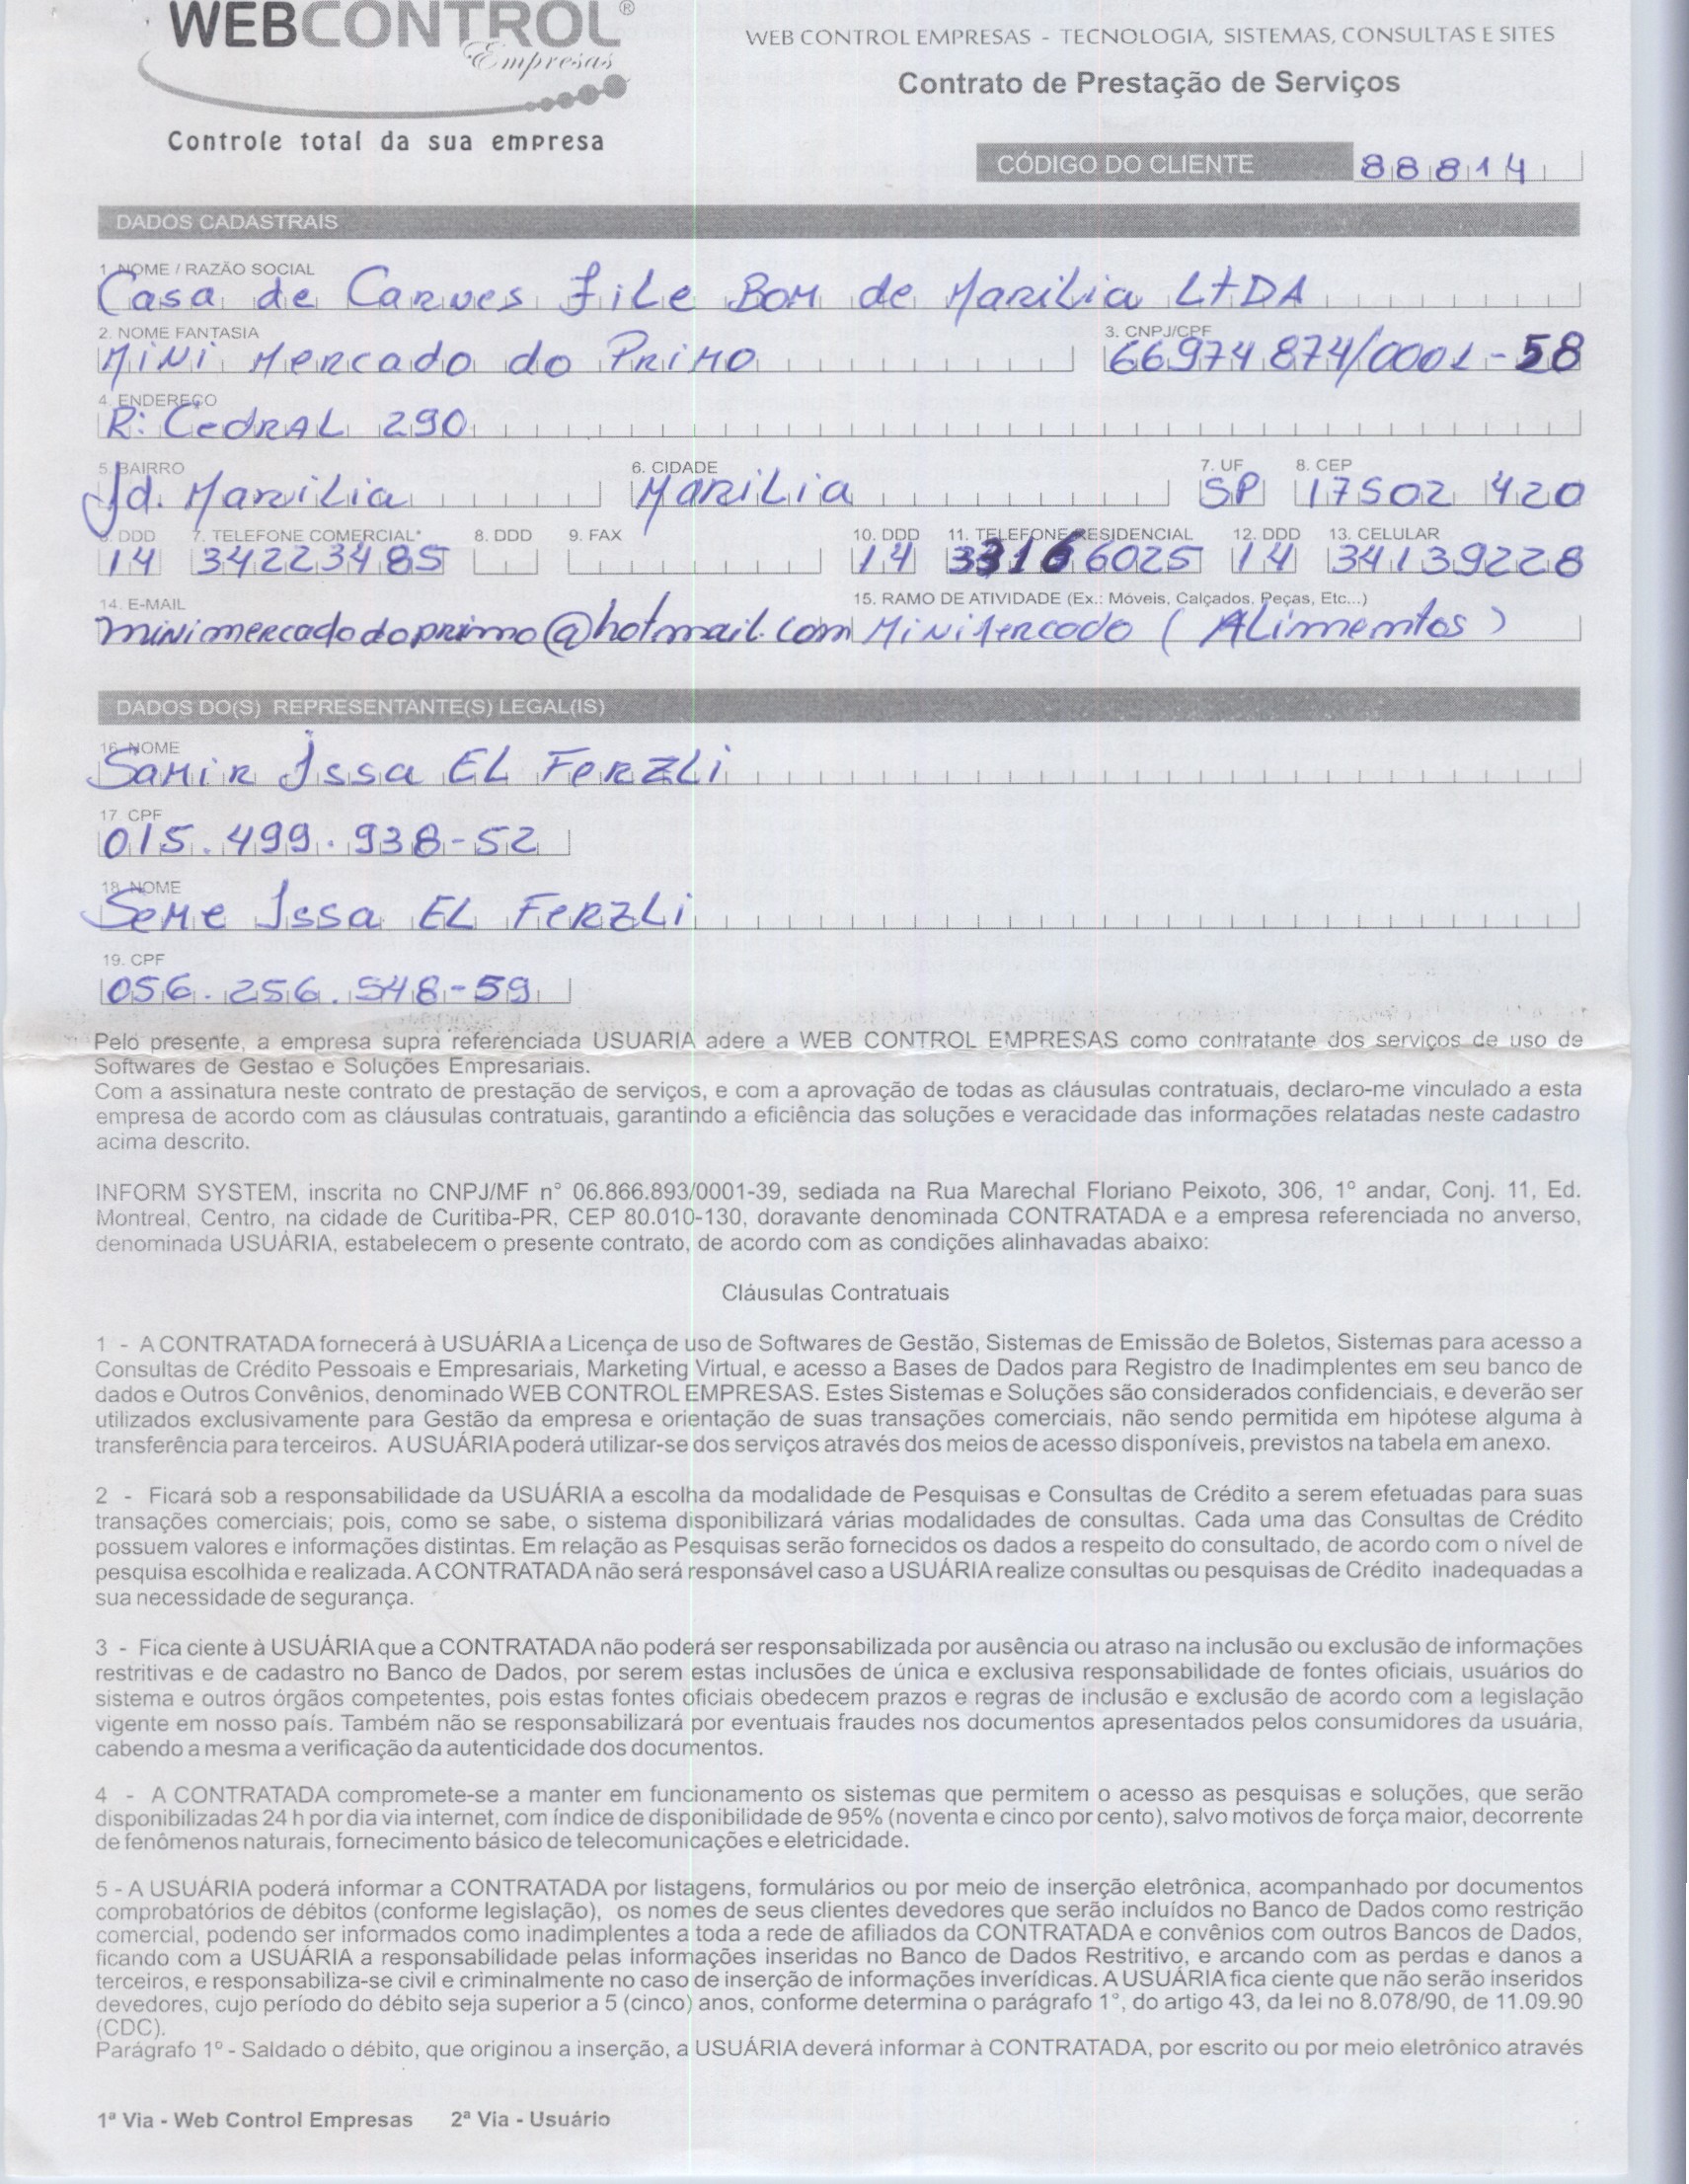 WEBCONTROL®
Empresas
Controle total da sua empresa
WEB CONTROL EMPRESAS - TECNOLOGIA, SISTEMAS, CONSULTAS E SITES
Contrato de Prestação de Serviços
CÓDIGO DO CLIENTE 88814
DADOS CADASTRAIS
1. NOME / RAZÃO SOCIAL
Casa de Carnes File Bom de Marilia LtDA
2. NOME FANTASIA 3. CNPJ/CPF
Mini Mercado do Primo 66974874/0001-58
4. ENDEREÇO
R: Cedral 290
5. BAIRRO 6. CIDADE 7. UF 8. CEP
Jd. Marilia Marilia SP 17502 420
DDD 7. TELEFONE COMERCIAL* 8. DDD 9. FAX 10. DDD 11. TELEFONE RESIDENCIAL 12. DDD 13. CELULAR
14 34223485 14 33166025 14 34139228
14. E-MAIL 15. RAMO DE ATIVIDADE (Ex.: Móveis, Calçados, Peças, Etc...)
minimercadodoprimo@hotmail.com MiniMercado (Alimentos)
DADOS DO(S) REPRESENTANTE(S) LEGAL(IS)
16. NOME
Samir Issa EL Ferzli
17. CPF
015.499.938-52
18. NOME
Seme Issa EL Ferzli
19. CPF
056.256.548-59
Pelo presente, a empresa supra referenciada USUARIA adere a WEB CONTROL EMPRESAS como contratante dos serviços de uso de
Softwares de Gestao e Soluções Empresariais.
Com a assinatura neste contrato de prestação de serviços, e com a aprovação de todas as cláusulas contratuais, declaro-me vinculado a esta
empresa de acordo com as cláusulas contratuais, garantindo a eficiência das soluções e veracidade das informações relatadas neste cadastro
acima descrito.
INFORM SYSTEM, inscrita no CNPJ/MF n° 06.866.893/0001-39, sediada na Rua Marechal Floriano Peixoto, 306, 1° andar, Conj. 11, Ed.
Montreal, Centro, na cidade de Curitiba-PR, CEP 80.010-130, doravante denominada CONTRATADA e a empresa referenciada no anverso,
denominada USUÁRIA, estabelecem o presente contrato, de acordo com as condições alinhavadas abaixo:
Cláusulas Contratuais
1 - A CONTRATADA fornecerá à USUÁRIA a Licença de uso de Softwares de Gestão, Sistemas de Emissão de Boletos, Sistemas para acesso a
Consultas de Crédito Pessoais e Empresariais, Marketing Virtual, e acesso a Bases de Dados para Registro de Inadimplentes em seu banco de
dados e Outros Convênios, denominado WEB CONTROL EMPRESAS. Estes Sistemas e Soluções são considerados confidenciais, e deverão ser
utilizados exclusivamente para Gestão da empresa e orientação de suas transações comerciais, não sendo permitida em hipótese alguma à
transferência para terceiros. A USUÁRIA poderá utilizar-se dos serviços através dos meios de acesso disponíveis, previstos na tabela em anexo.
2 - Ficará sob a responsabilidade da USUÁRIA a escolha da modalidade de Pesquisas e Consultas de Crédito a serem efetuadas para suas
transações comerciais; pois, como se sabe, o sistema disponibilizará várias modalidades de consultas. Cada uma das Consultas de Crédito
possuem valores e informações distintas. Em relação as Pesquisas serão fornecidos os dados a respeito do consultado, de acordo com o nível de
pesquisa escolhida e realizada. A CONTRATADA não será responsável caso a USUÁRIA realize consultas ou pesquisas de Crédito inadequadas a
sua necessidade de segurança.
3 - Fica ciente à USUÁRIA que a CONTRATADA não poderá ser responsabilizada por ausência ou atraso na inclusão ou exclusão de informações
restritivas e de cadastro no Banco de Dados, por serem estas inclusões de única e exclusiva responsabilidade de fontes oficiais, usuários do
sistema e outros órgãos competentes, pois estas fontes oficiais obedecem prazos e regras de inclusão e exclusão de acordo com a legislação
vigente em nosso país. Também não se responsabilizará por eventuais fraudes nos documentos apresentados pelos consumidores da usuária,
cabendo a mesma a verificação da autenticidade dos documentos.
4 - A CONTRATADA compromete-se a manter em funcionamento os sistemas que permitem o acesso as pesquisas e soluções, que serão
disponibilizadas 24 h por dia via internet, com índice de disponibilidade de 95% (noventa e cinco por cento), salvo motivos de força maior, decorrente
de fenômenos naturais, fornecimento básico de telecomunicações e eletricidade.
5 - A USUÁRIA poderá informar a CONTRATADA por listagens, formulários ou por meio de inserção eletrônica, acompanhado por documentos
comprobatórios de débitos (conforme legislação), os nomes de seus clientes devedores que serão incluídos no Banco de Dados como restrição
comercial, podendo ser informados como inadimplentes a toda a rede de afiliados da CONTRATADA e convênios com outros Bancos de Dados,
ficando com a USUÁRIA a responsabilidade pelas informações inseridas no Banco de Dados Restritivo, e arcando com as perdas e danos a
terceiros, e responsabiliza-se civil e criminalmente no caso de inserção de informações inverídicas. A USUÁRIA fica ciente que não serão inseridos
devedores, cujo período do débito seja superior a 5 (cinco) anos, conforme determina o parágrafo 1°, do artigo 43, da lei no 8.078/90, de 11.09.90
(CDC).
Parágrafo 1º - Saldado o débito, que originou a inserção, a USUÁRIA deverá informar à CONTRATADA, por escrito ou por meio eletrônico através
1ª Via - Web Control Empresas 2ª Via - Usuário